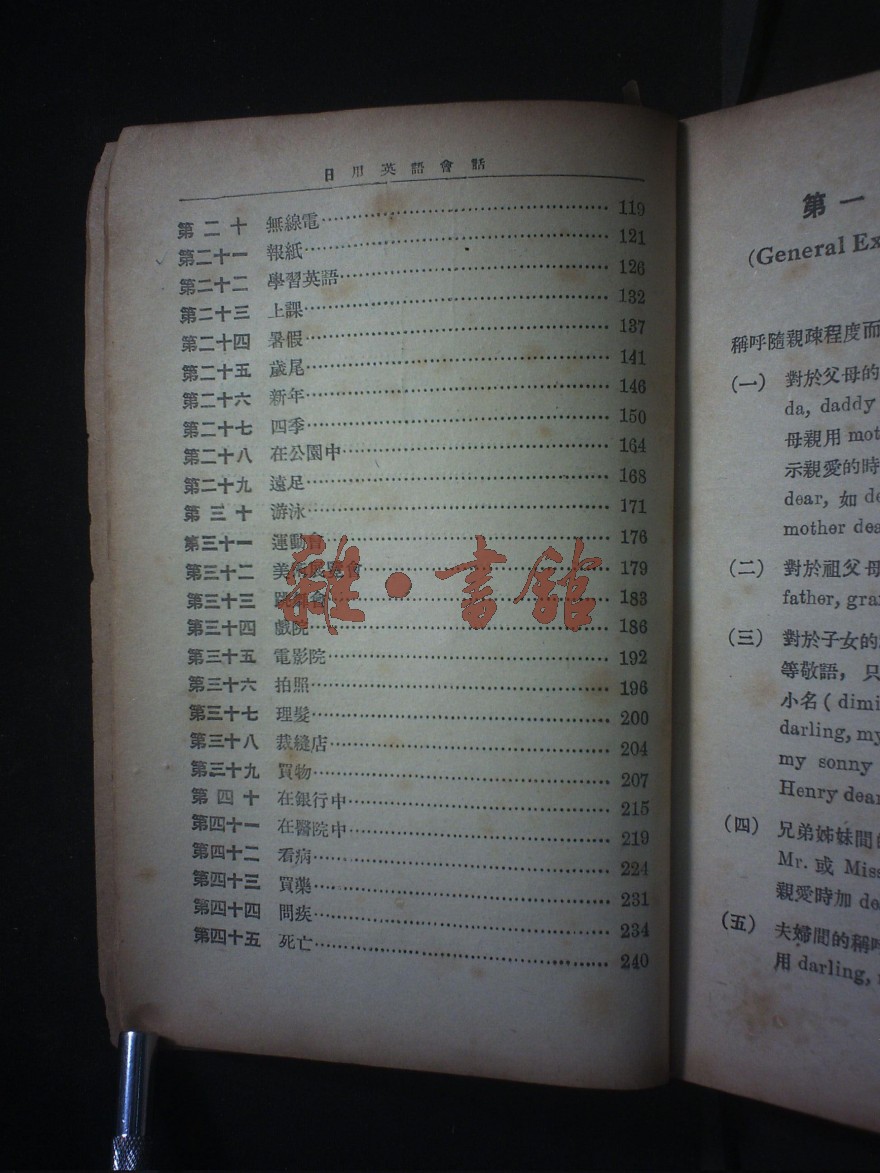 日用英語會話
第二十 無線電 119
第二十一 報紙 121
第二十二 學習英語 126
第二十三 上課 132
第二十四 暑假 137
第二十五 歲尾 141
第二十六 新年 146
第二十七 四季 150
第二十八 在公園中 164
第二十九 遠足 168
第三十 游泳 171
第三十一 運動會 176
第三十二 美術展覽會 179
第三十三 會 183
第三十四 戲院 186
第三十五 電影院 192
第三十六 拍照 196
第三十七 理髮 200
第三十八 裁縫店 204
第三十九 買物 207
第四十 在銀行中 215
第四十一 在醫院中 219
第四十二 看病 224
第四十三 買藥 231
第四十四 問疾 234
第四十五 死亡 240
雜·書館
第一
(General Ex
稱呼隨親疎程度而
(一) 對於父母的
da, daddy
母親用 mot
示親愛的時
dear, 如 de
mother dea
(二) 對於祖父母
father, gra
(三) 對於子女的
等敬語, 只
小名 ( dimi
darling, my
my sonny
Henry dear
(四) 兄弟姊妹間
Mr. 或 Miss
親愛時加 de
(五) 夫婦間的稱呼
用 darling,